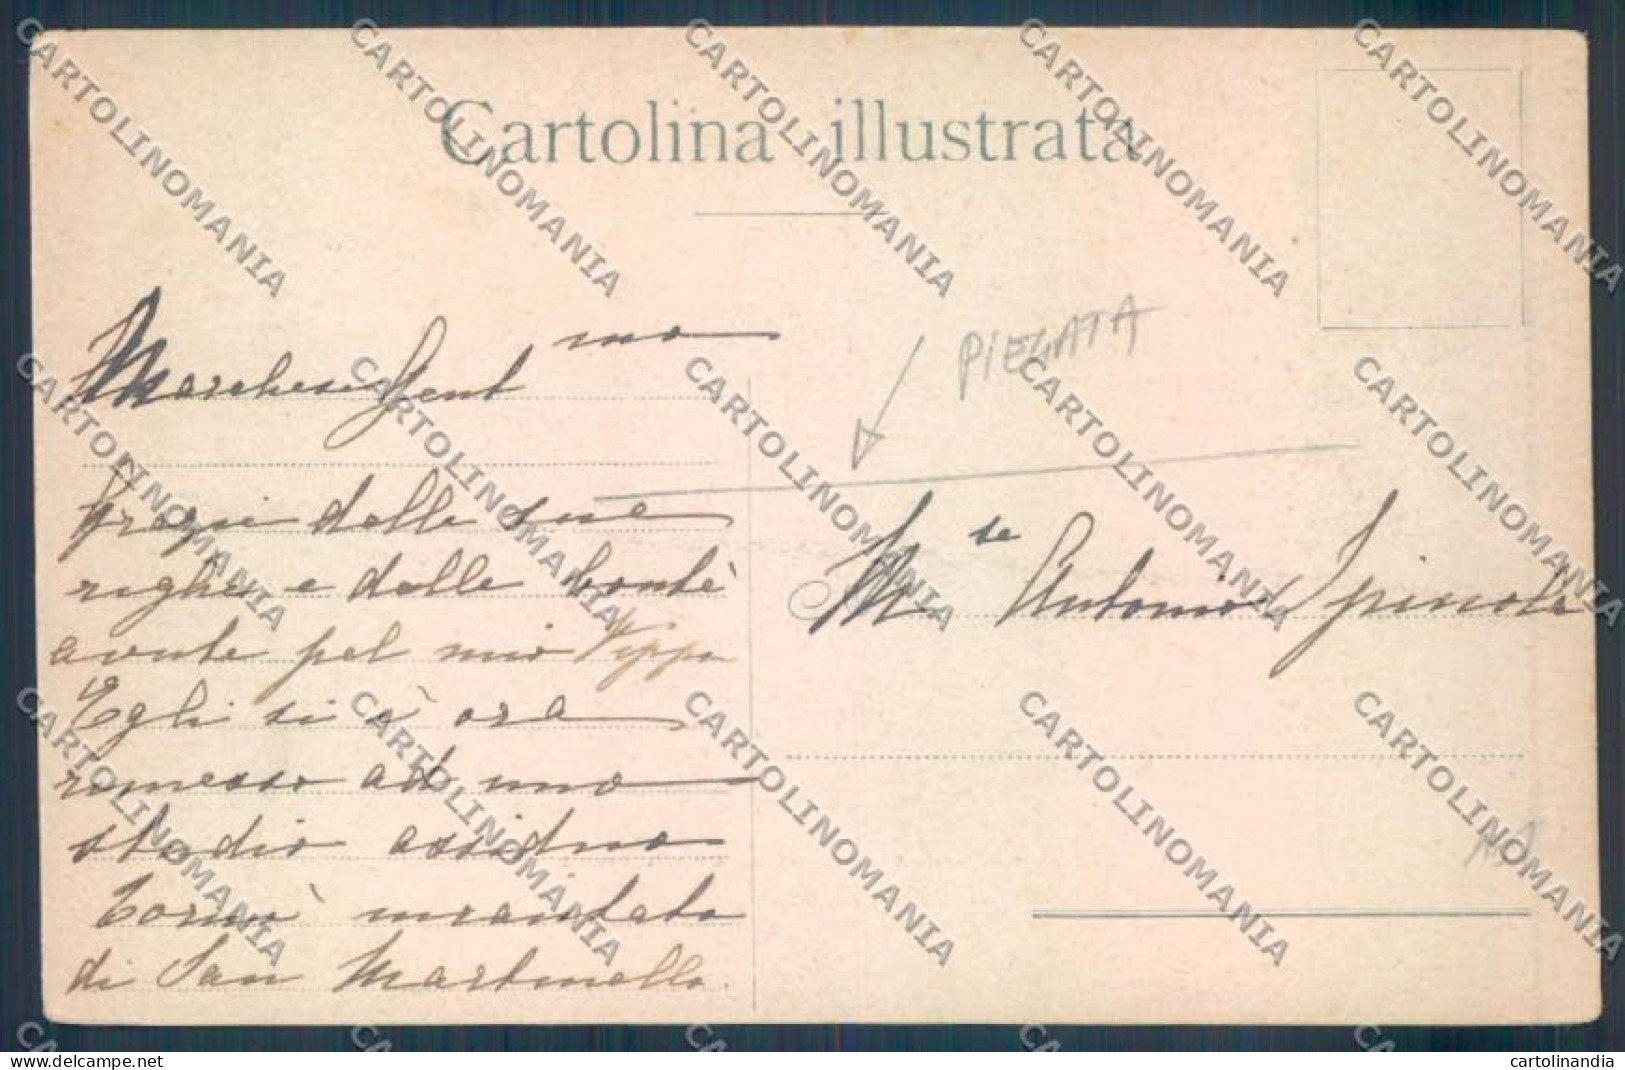 Cartolina illustrata
Marchese Gent mo
PIEGATA
Grazie delle sue
righe e delle bontà
avute pel mio Pippo
Egli si è ora
rimesso ad uno
studio assiduo
Tornò incantato
di San Martinello.
M se Antonio Spinola
CARTOLINOMANIA
delcampe.net
cartolinandia